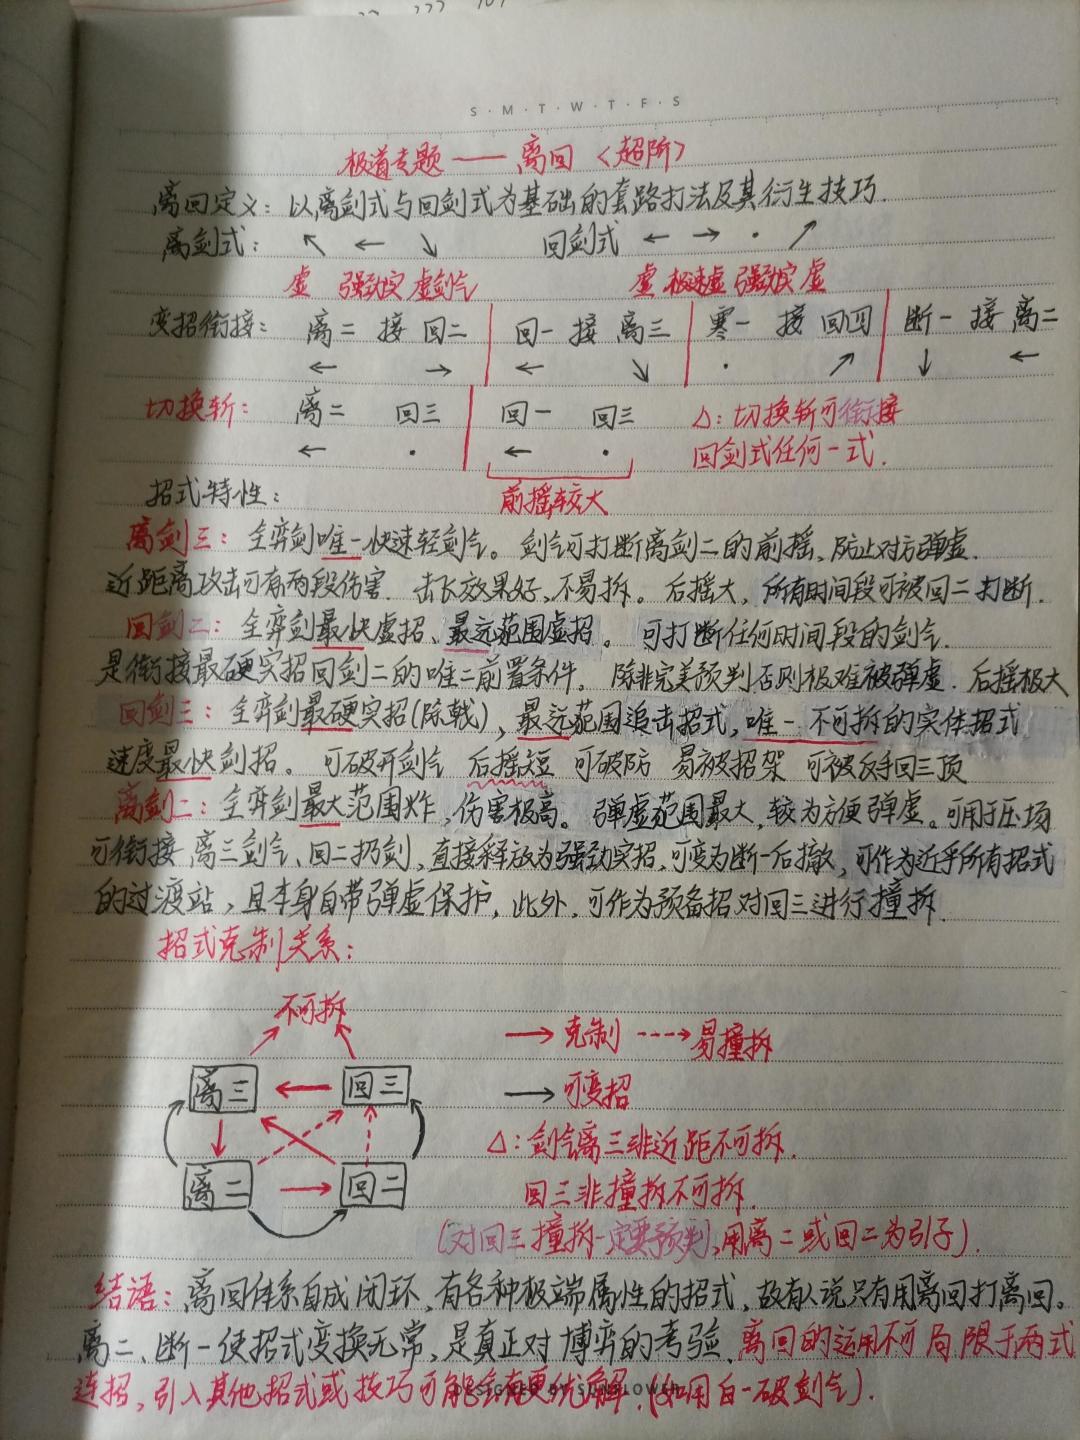 S·M·T·W·T·F·S
极道专题——离回〈超阶〉
离回定义：以离剑式与回剑式为基础的套路打法及其衍生技巧.
离剑式： ↖ ← ↘ 回剑式 ← → · ↗
虚 强劲实 虚剑气 虚 极速虚 强劲实 虚
变招衔接： 离二 接 回二 回一 接 离三 寒一 接 回四 断一 接 离二
← → ← ↘ · ↗ ↓ ←
切换斩： 离二 回三 回一 回三 △：切换斩可衔接
← · ← · 回剑式任何一式.
招式特性： 前摇较大
离剑三：全弈剑唯一快速轻剑气。剑气可打断离剑二的前摇、防止对方弹虚.
近距离攻击可有两段伤害. 击飞效果好、不易拆。后摇大，所有时间段可被回二打断.
回剑二：全弈剑最快虚招、最远范围虚招。可打断任何时间段的剑气.
是衔接最硬实招回剑二的唯二前置条件。除非完美预判否则极难被弹虚. 后摇极大
回剑三：全弈剑最硬实招(除戟)，最远范围追击招式，唯一不可拆的实体招式
速度最快剑招。可破开剑气 后摇短 可破防 易被招架 可被反手回三顶
离剑二：全弈剑最大范围炸，伤害极高。弹虚范围最大，较为方便弹虚。可用于压场
可衔接离三剑气、回二扔剑，直接释放为强劲实招，可变为断一后撤，可作为近乎所有招式
的过渡站，且本身自带弹虚保护，此外，可作为预备招对回三进行撞拆.
招式克制关系：
不可拆
→ 克制 ---→ 易撞拆
离三 ← 回三
→ 可变招
△：剑气离三非近距不可拆.
离二 → 回二
回三非撞拆不可拆.
(对回三撞拆一定要预判，用离二或回二为引子).
结语：离回体系自成闭环，有各种极端属性的招式，故有人说只有用离回打离回。
离二、断一使招式变换无常，是真正对博弈的考验. 离回的运用不可局限于两式
连招，引入其他招式或技巧可能会有更优解. (如用白一破剑气).
DESIGNED BY SUNFLOWER